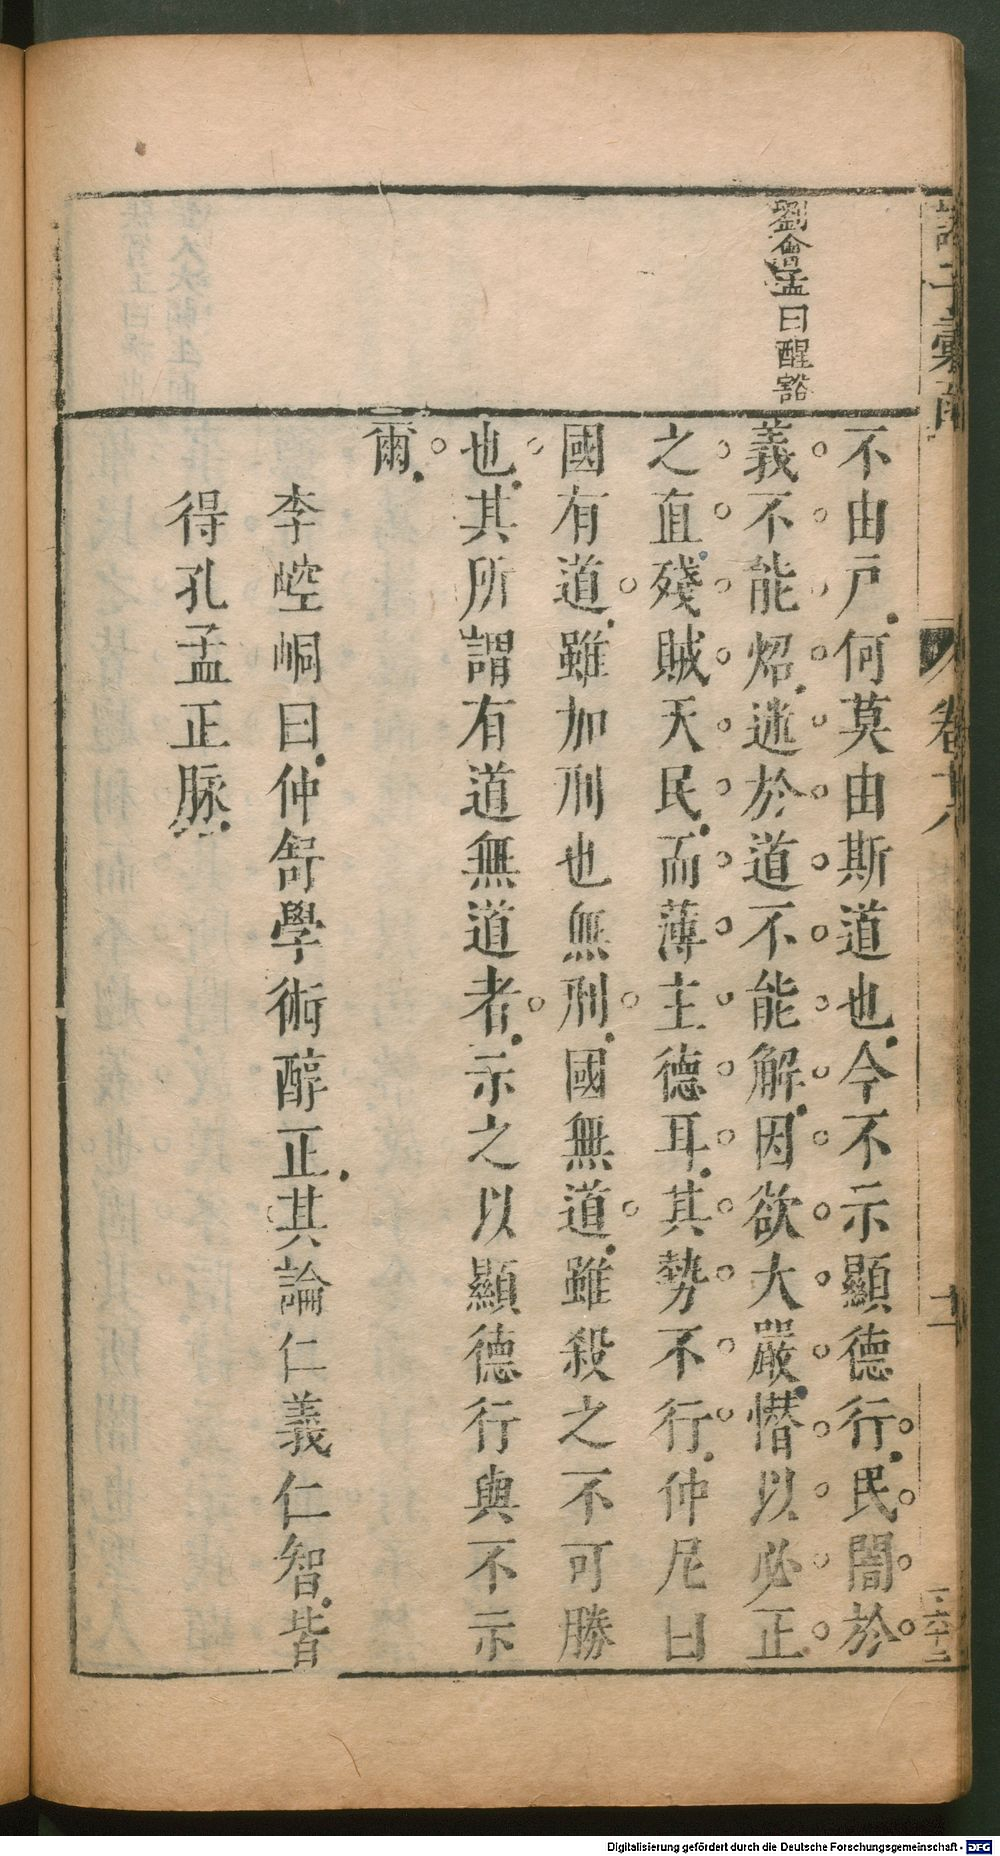 劉會孟曰醒豁
不由戸何莫由斯道也今不示顯德行民闇於
義不能炤迷於道不能解因欲大嚴憯以必正
之直殘賊天民而薄主德耳其勢不行仲尼曰
國有道雖加刑也無刑國無道雖殺之不可勝
也其所謂有道無道者示之以顯德行與不示
爾
李崆峒曰仲舒學術醇正其論仁義仁智皆
得孔孟正脉
Digitalisierung gefördert durch die Deutsche Forschungsgemeinschaft - DFG